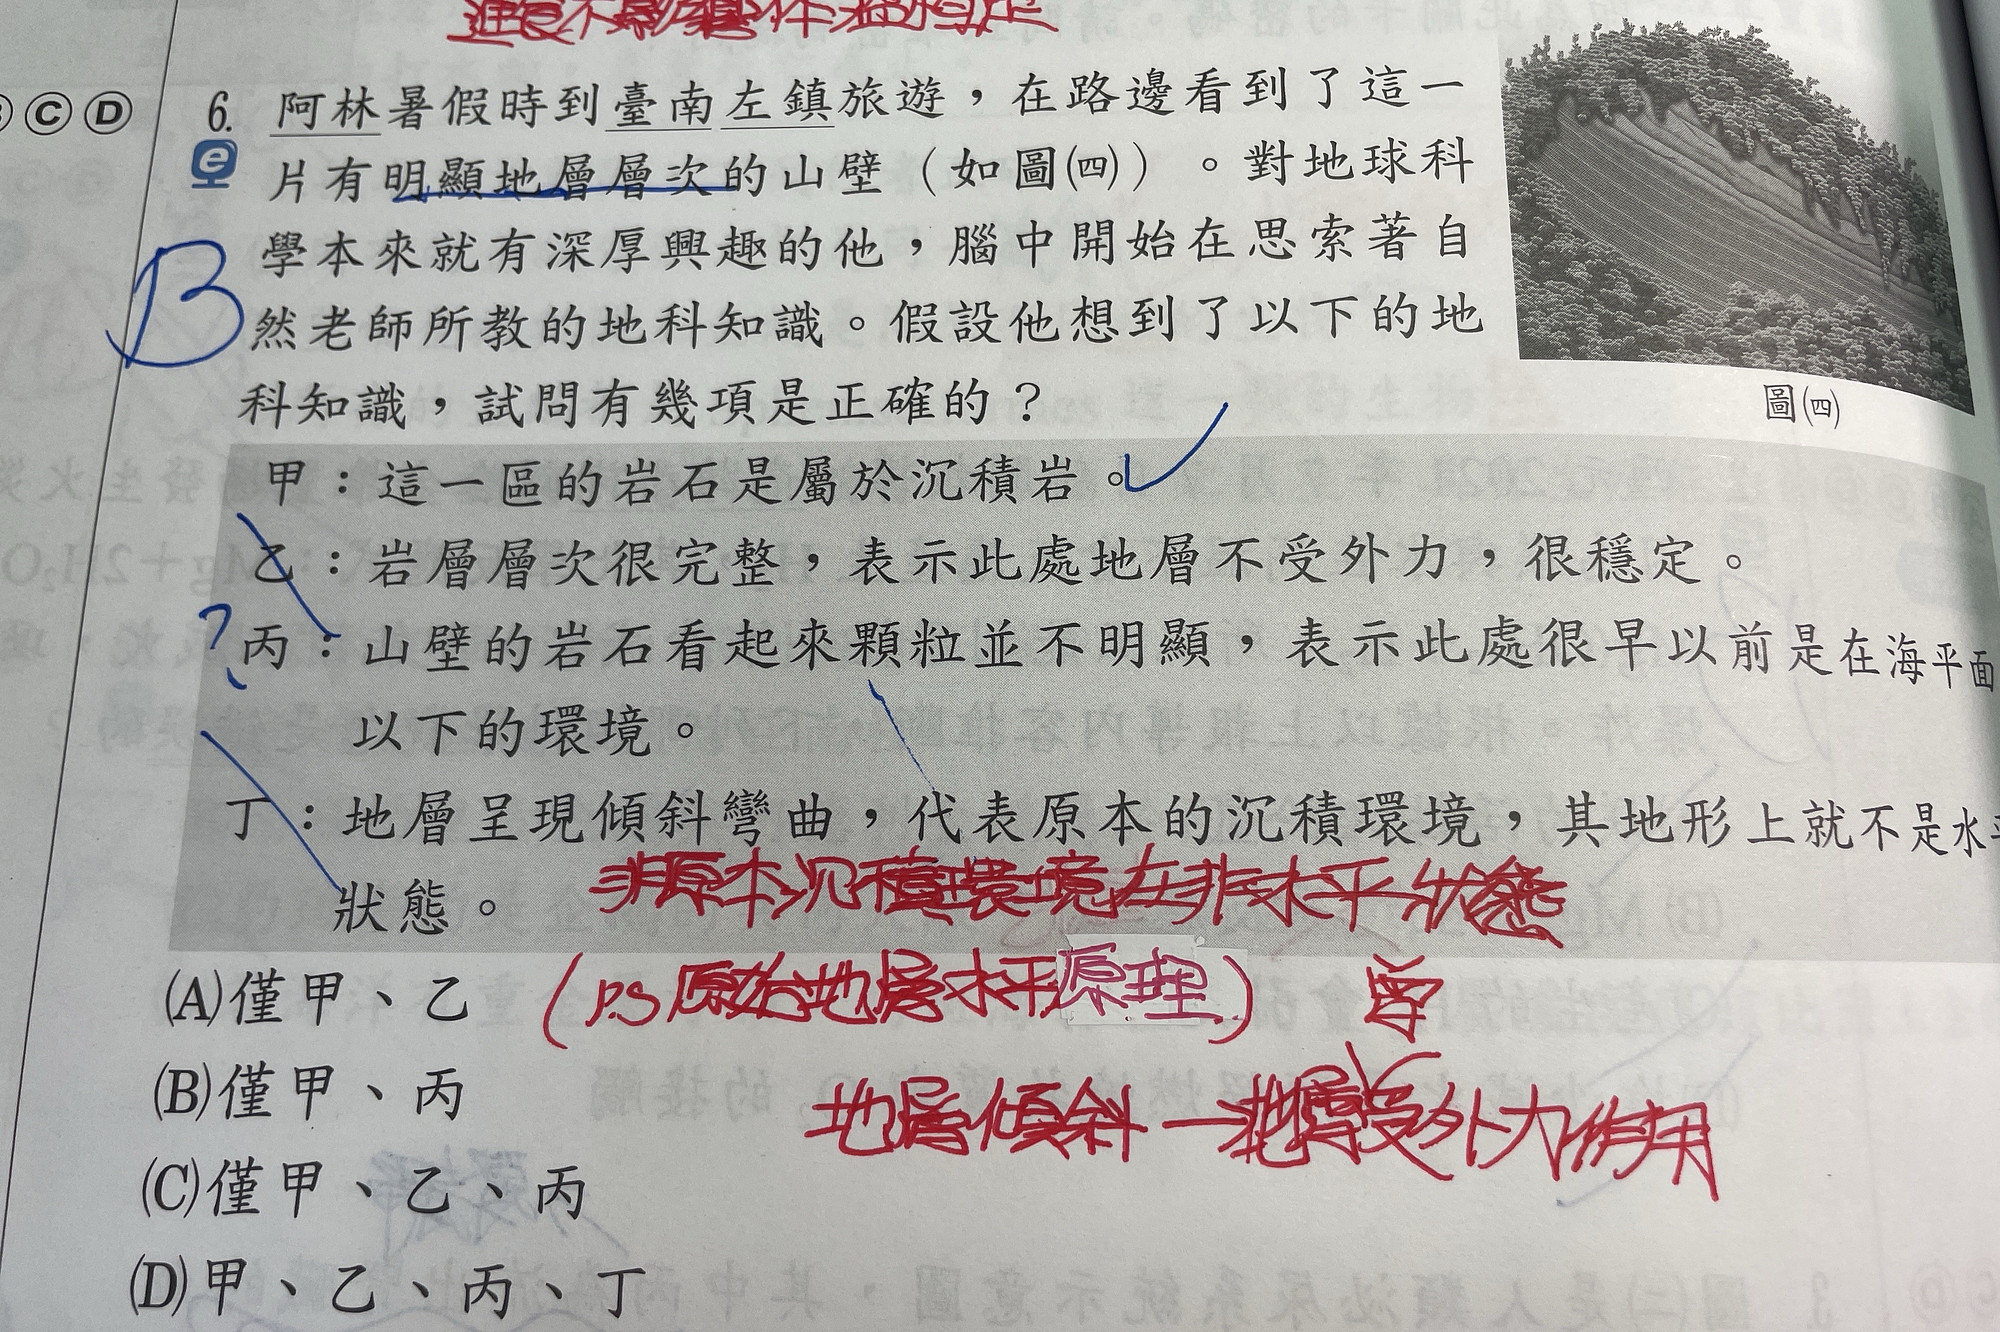 ⒸⒹ 6. 阿林暑假時到臺南左鎮旅遊，在路邊看到了這一
片有明顯地層層次的山壁（如圖㈣）。對地球科
學本來就有深厚興趣的他，腦中開始在思索著自
然老師所教的地科知識。假設他想到了以下的地
科知識，試問有幾項是正確的？
B
圖㈣
甲：這一區的岩石是屬於沉積岩。
乙：岩層層次很完整，表示此處地層不受外力，很穩定。
?
丙：山壁的岩石看起來顆粒並不明顯，表示此處很早以前是在海平面
以下的環境。
丁：地層呈現傾斜彎曲，代表原本的沉積環境，其地形上就不是水平
狀態。
非原本沉積環境在非水平狀態
(A)僅甲、乙
(P.S原始地層水平原理)
(B)僅甲、丙
地層傾斜一地層受外力作用
(C)僅甲、乙、丙
(D)甲、乙、丙、丁